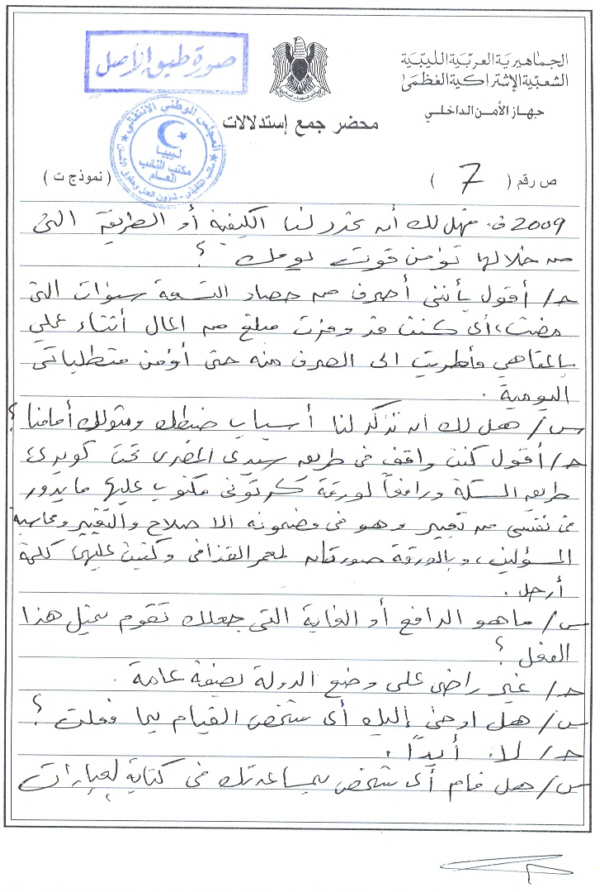 صورة طبق الأصل
الجماهيرية العربية الليبية
الشعبية الإشتراكية العظمى
جهاز الأمن الداخلي
محضر جمع إستدلالات
المجلس الوطني الانتقالي
ليبيا
مكتب النائب
العام
ص رقم ( 7 ) ( نموذج ت )
2009 ف. فهل لك أن تحدد لنا الكيفية أو الطريقة التي
من خلالها تؤمن قوت يومك ؟
جـ/ أقول بأنني أصرف من حصاد التسعة سنوات التي
مضت، أي كنت قد وفرت مبلغ من المال أثناء عملي
بالمقاهي وأطريت الى الصرف منه حتى أؤمن متطلباتي
اليومية .
س/ هل لك أن تذكر لنا أسباب ضبطك ومثولك أمامنا ؟
جـ/ أقول كنت واقف في طريق سيدي المصري تحت كوبري
طريق السكة ورافعاً لورقة كرتوني مكتوب عليها ما يدور
في نفسي من تعبير وهو في مضمونه الاصلاح والتغيير ومحاسبة
المسؤلين، وبالورقة صورتان لمعمر القذافي وكتبت عليها كلمة
أرحل .
س/ ماهو الدافع أو الغاية التي جعلك تقوم بمثل هذا
الفعل ؟
جـ/ غير راضي على وضع الدولة بصفة عامة .
س/ هل اوحى إليك أي شخص القيام بما فعلت ؟
جـ/ لا . أبداً .
س/ هل قام أي شخص بمساعدتك في كتابة العبارات